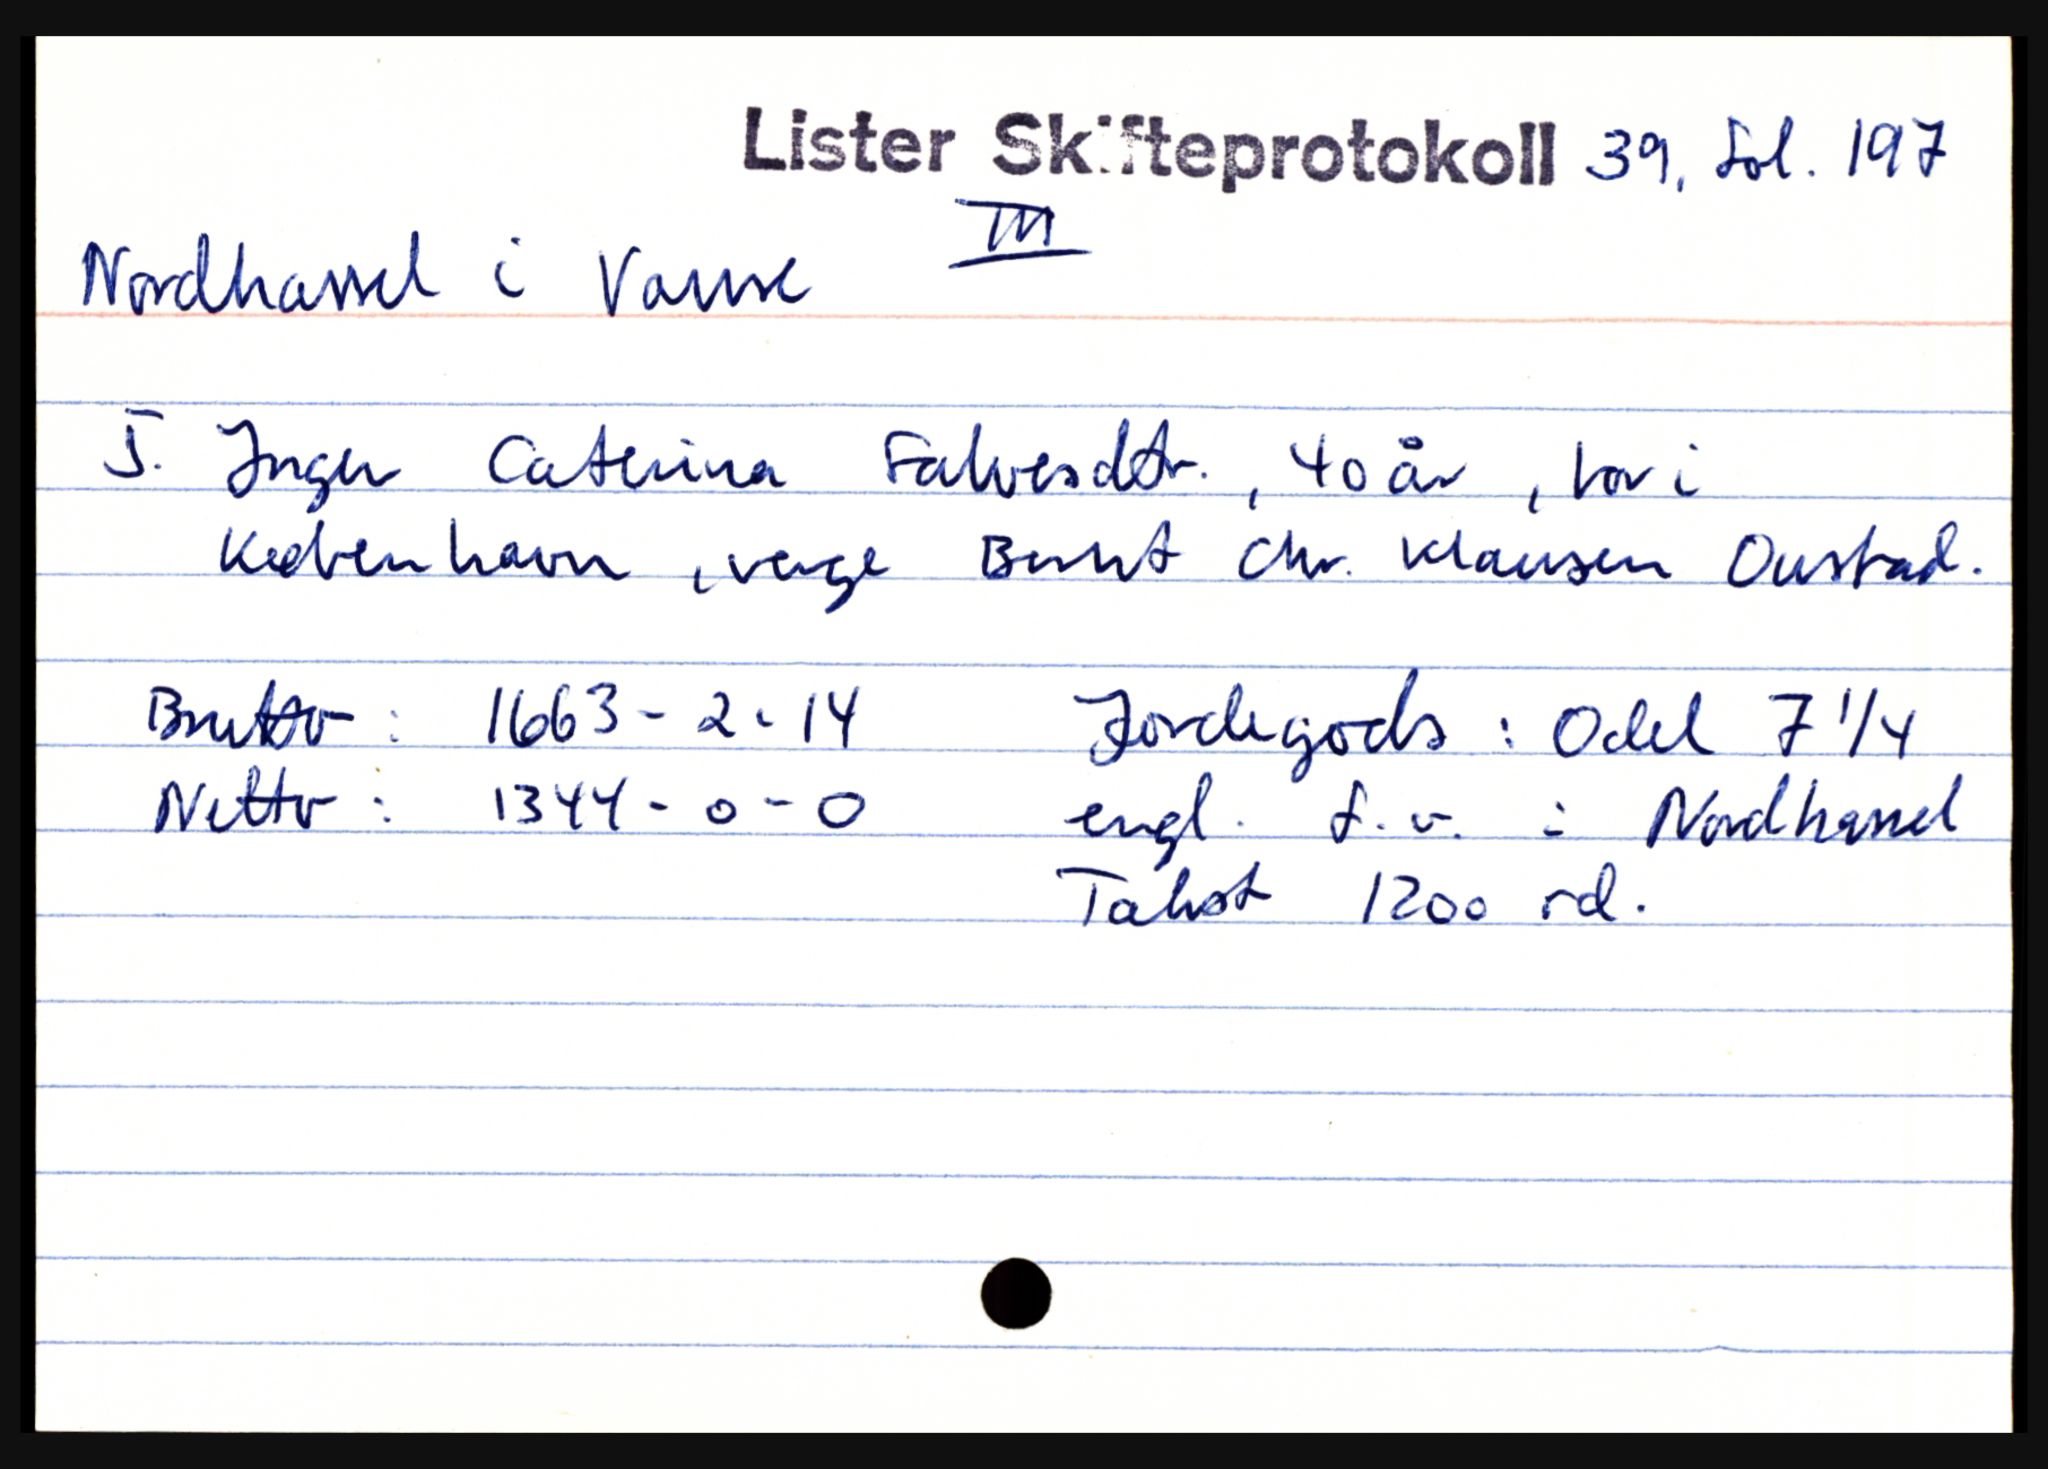 Lister Skifteprotokoll 39, fol. 197
III
Nordhassel i Vanse
5. Inger Caterina Falvesdtr., 40 år, bor i
København, verge Bernt Chr. Klausen Oustad.
Brutto: 1663-2-14 Jordegods: Odel 7 1/4
Netto: 1344-0-0 engl. s.v. i Nordhassel
Takst 1200 rd.